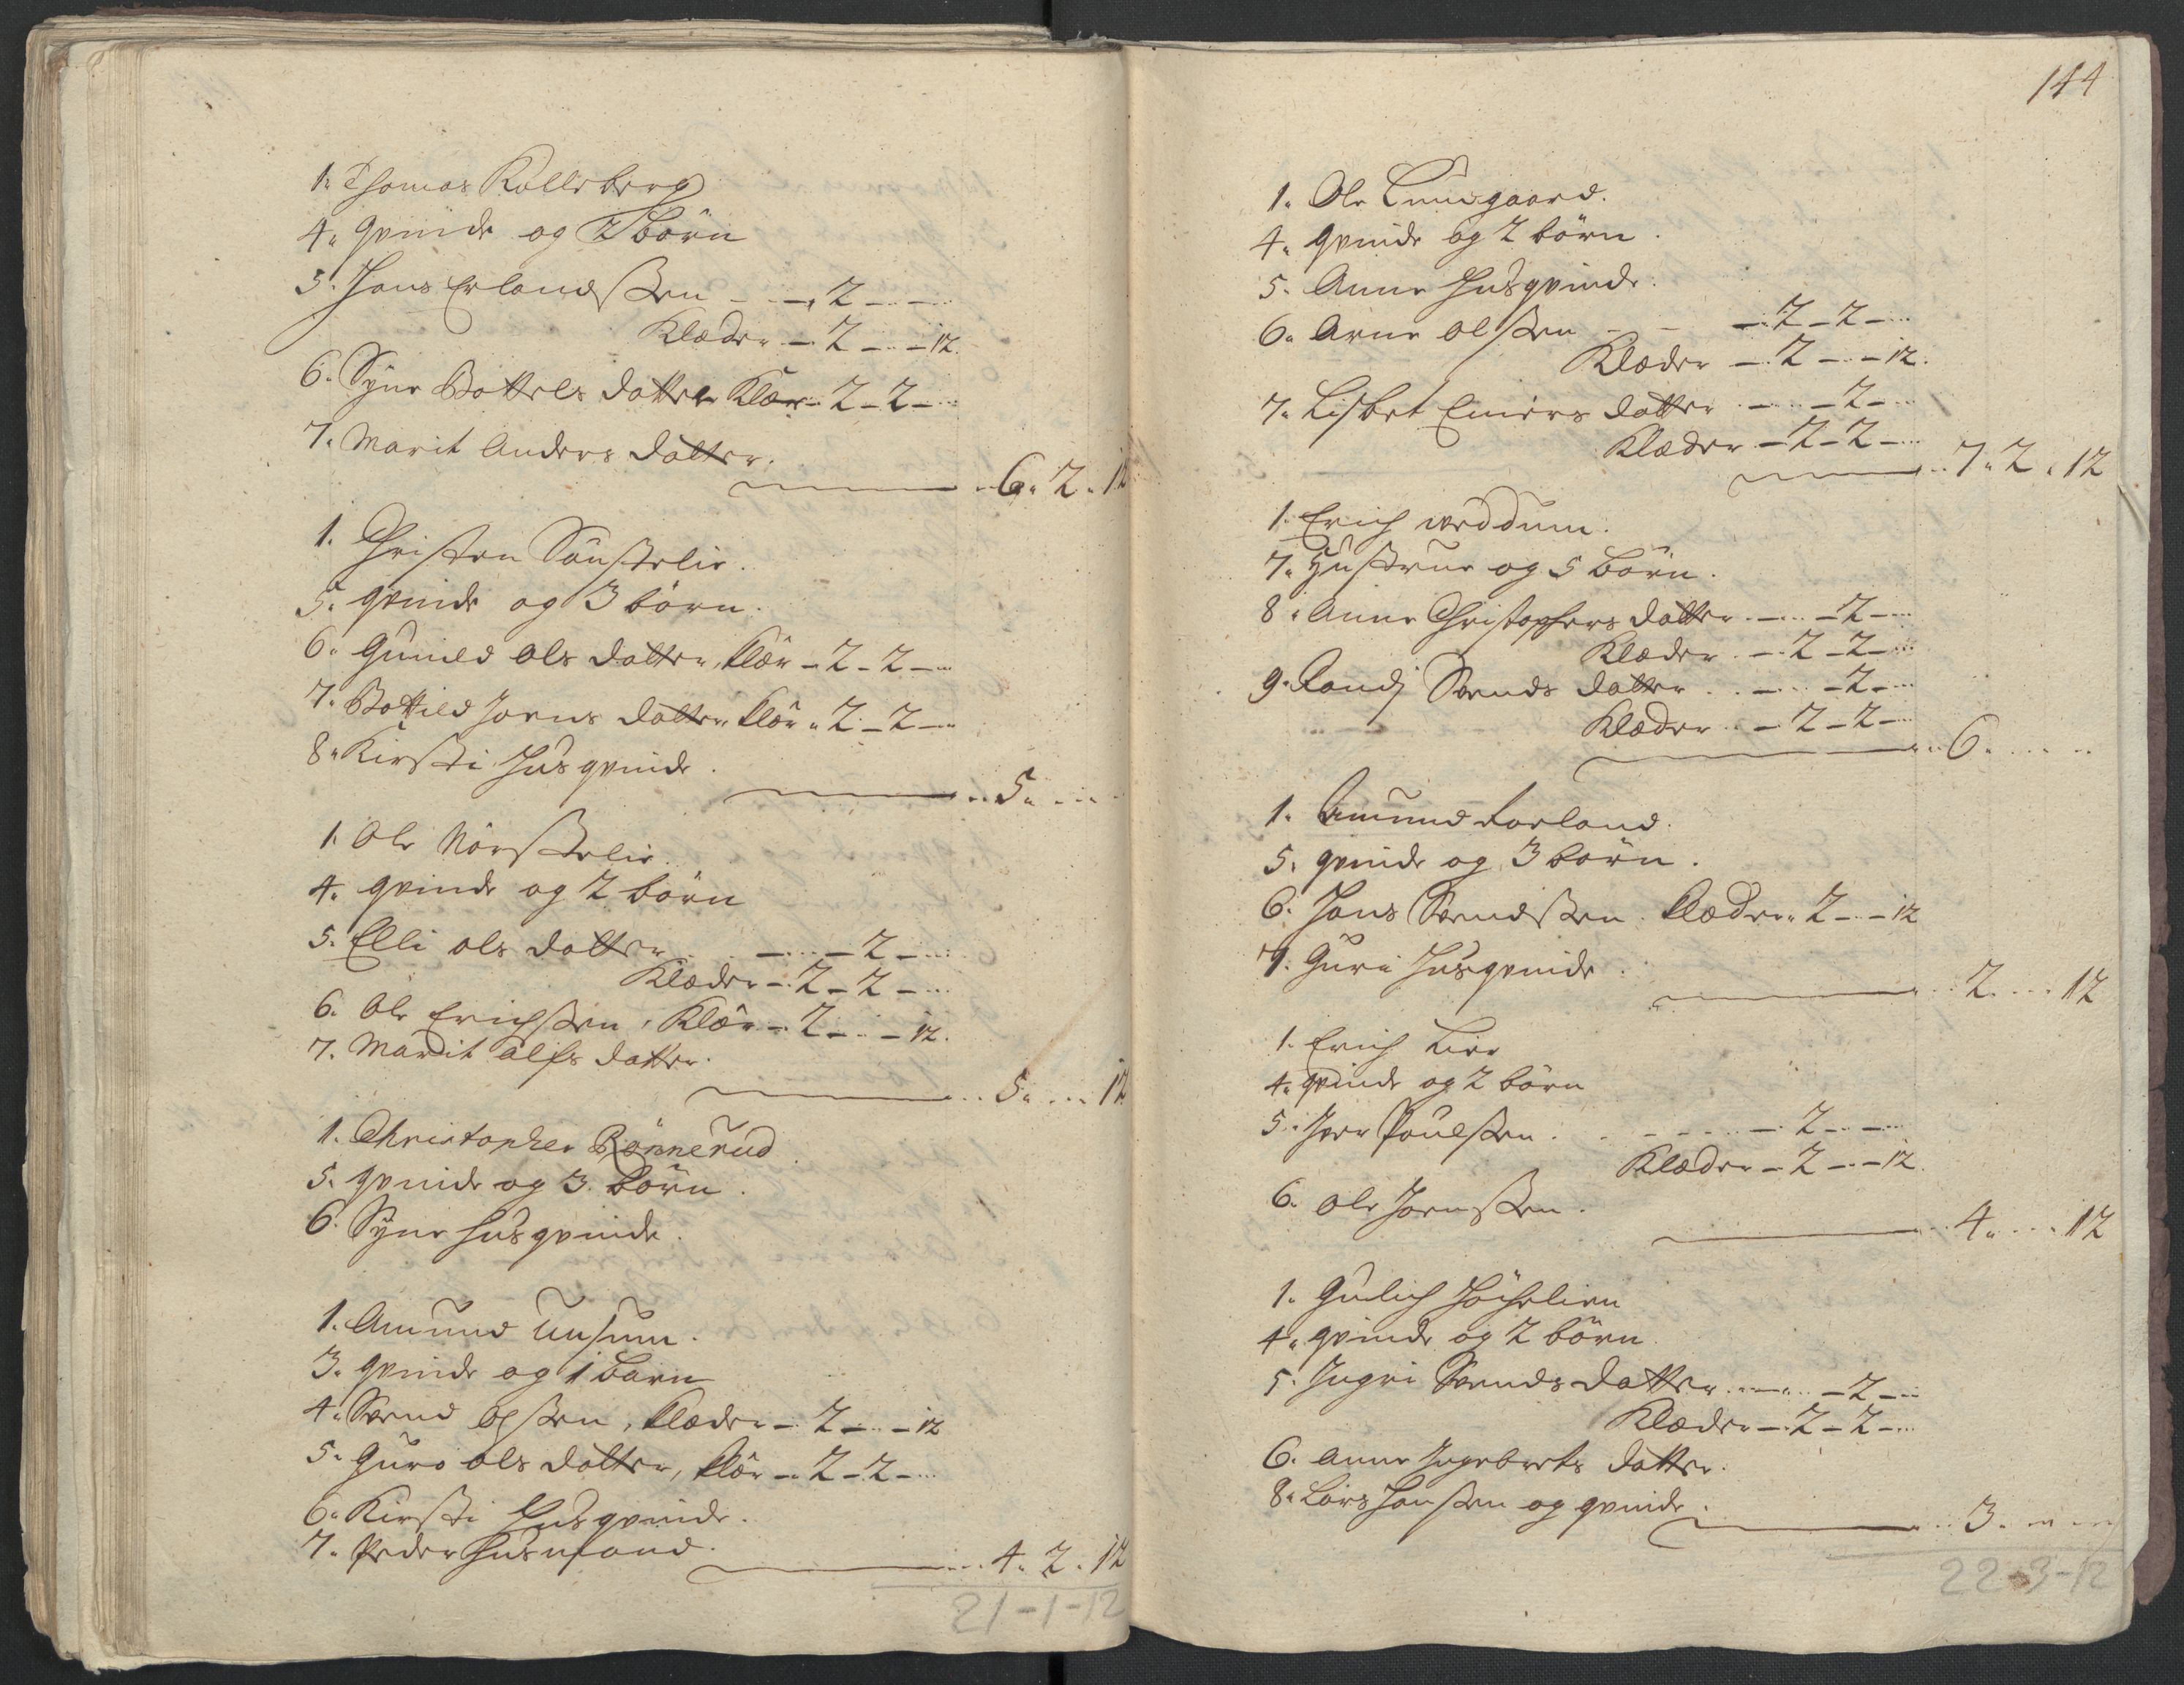 1. Thomas Kolleberg
4. qvinde og 2 börn
5. Hans Erlandssen - - 2 - -
Klæder - 2 - - 12.
6. Syne Bottels datter Klær - 2 - 2 -
7. Marit Anders datter.
6. 2. 12
1. Christen Sönstelie.
5. qvinde og 3 börn.
6. Gunild Ols datter, klær - 2 - 2 -
7. Bottild Jorns datter klær - 2 - 2 -
8. Kirsti Husqvinde.
5.
1. Ole Nörstelie.
4. qvinde og 2 börn
5. Elli Ols datter - - 2 -
Klæder - 2 - 2 -
6. Ole Erichssen, Klær - 2 - - 12.
7. Marit Alfs datter.
5. ... 12
1. Christopher Rönnerud.
5. qvinde og 3. börn.
6. Syne husqvinde.
1. Amund Unsum.
3. qvinde og 1 barn
4. Svend Olssen, klæder - 2 - - 12
5. Guro Ols datter, klær - 2 - 2 -
6. Kirsti Husqvinde.
7. Peder husmand.
4. 2. 12
21-1-12
144
1. Ole Lundgaard.
4. qvinde og 2 börn.
5. Anne Husqvinde.
6. Arne Olssen - - 2 - 2 -
Klæder - 2 - - 12.
7. Lisbet Einers datter - - 2 -
Klæder - 2 - 2 -
7. 2. 12
1. Erich weddum.
7. Hustrue og 5 börn.
8. Anne Christophers datter - - 2 -
Klæder - 2 - 2 -
9. Randj Svends datter - - 2 -
Klæder - 2 - 2 -
6.
1. Amund Forland.
5. qvinde og 3 börn.
6. Hans Svendssen. klæder 2 - - 12
7. Guri Husqvinde.
2. ... 12
1. Erich Lier
4. qvinde og 2 börn
5. Iver Poulssen - - 2 - -
Klæder - 2 - - 12.
6. Ole Jornssen.
4. ... 12
1. Gulich
4. qvinde og 2 börn.
5. Ingri Svends datter - - 2 -
Klæder - 2 - 2 -
6. Anne Ingebrets datter.
8. Lars Hanssen og qvinde.
3.
22-3-12